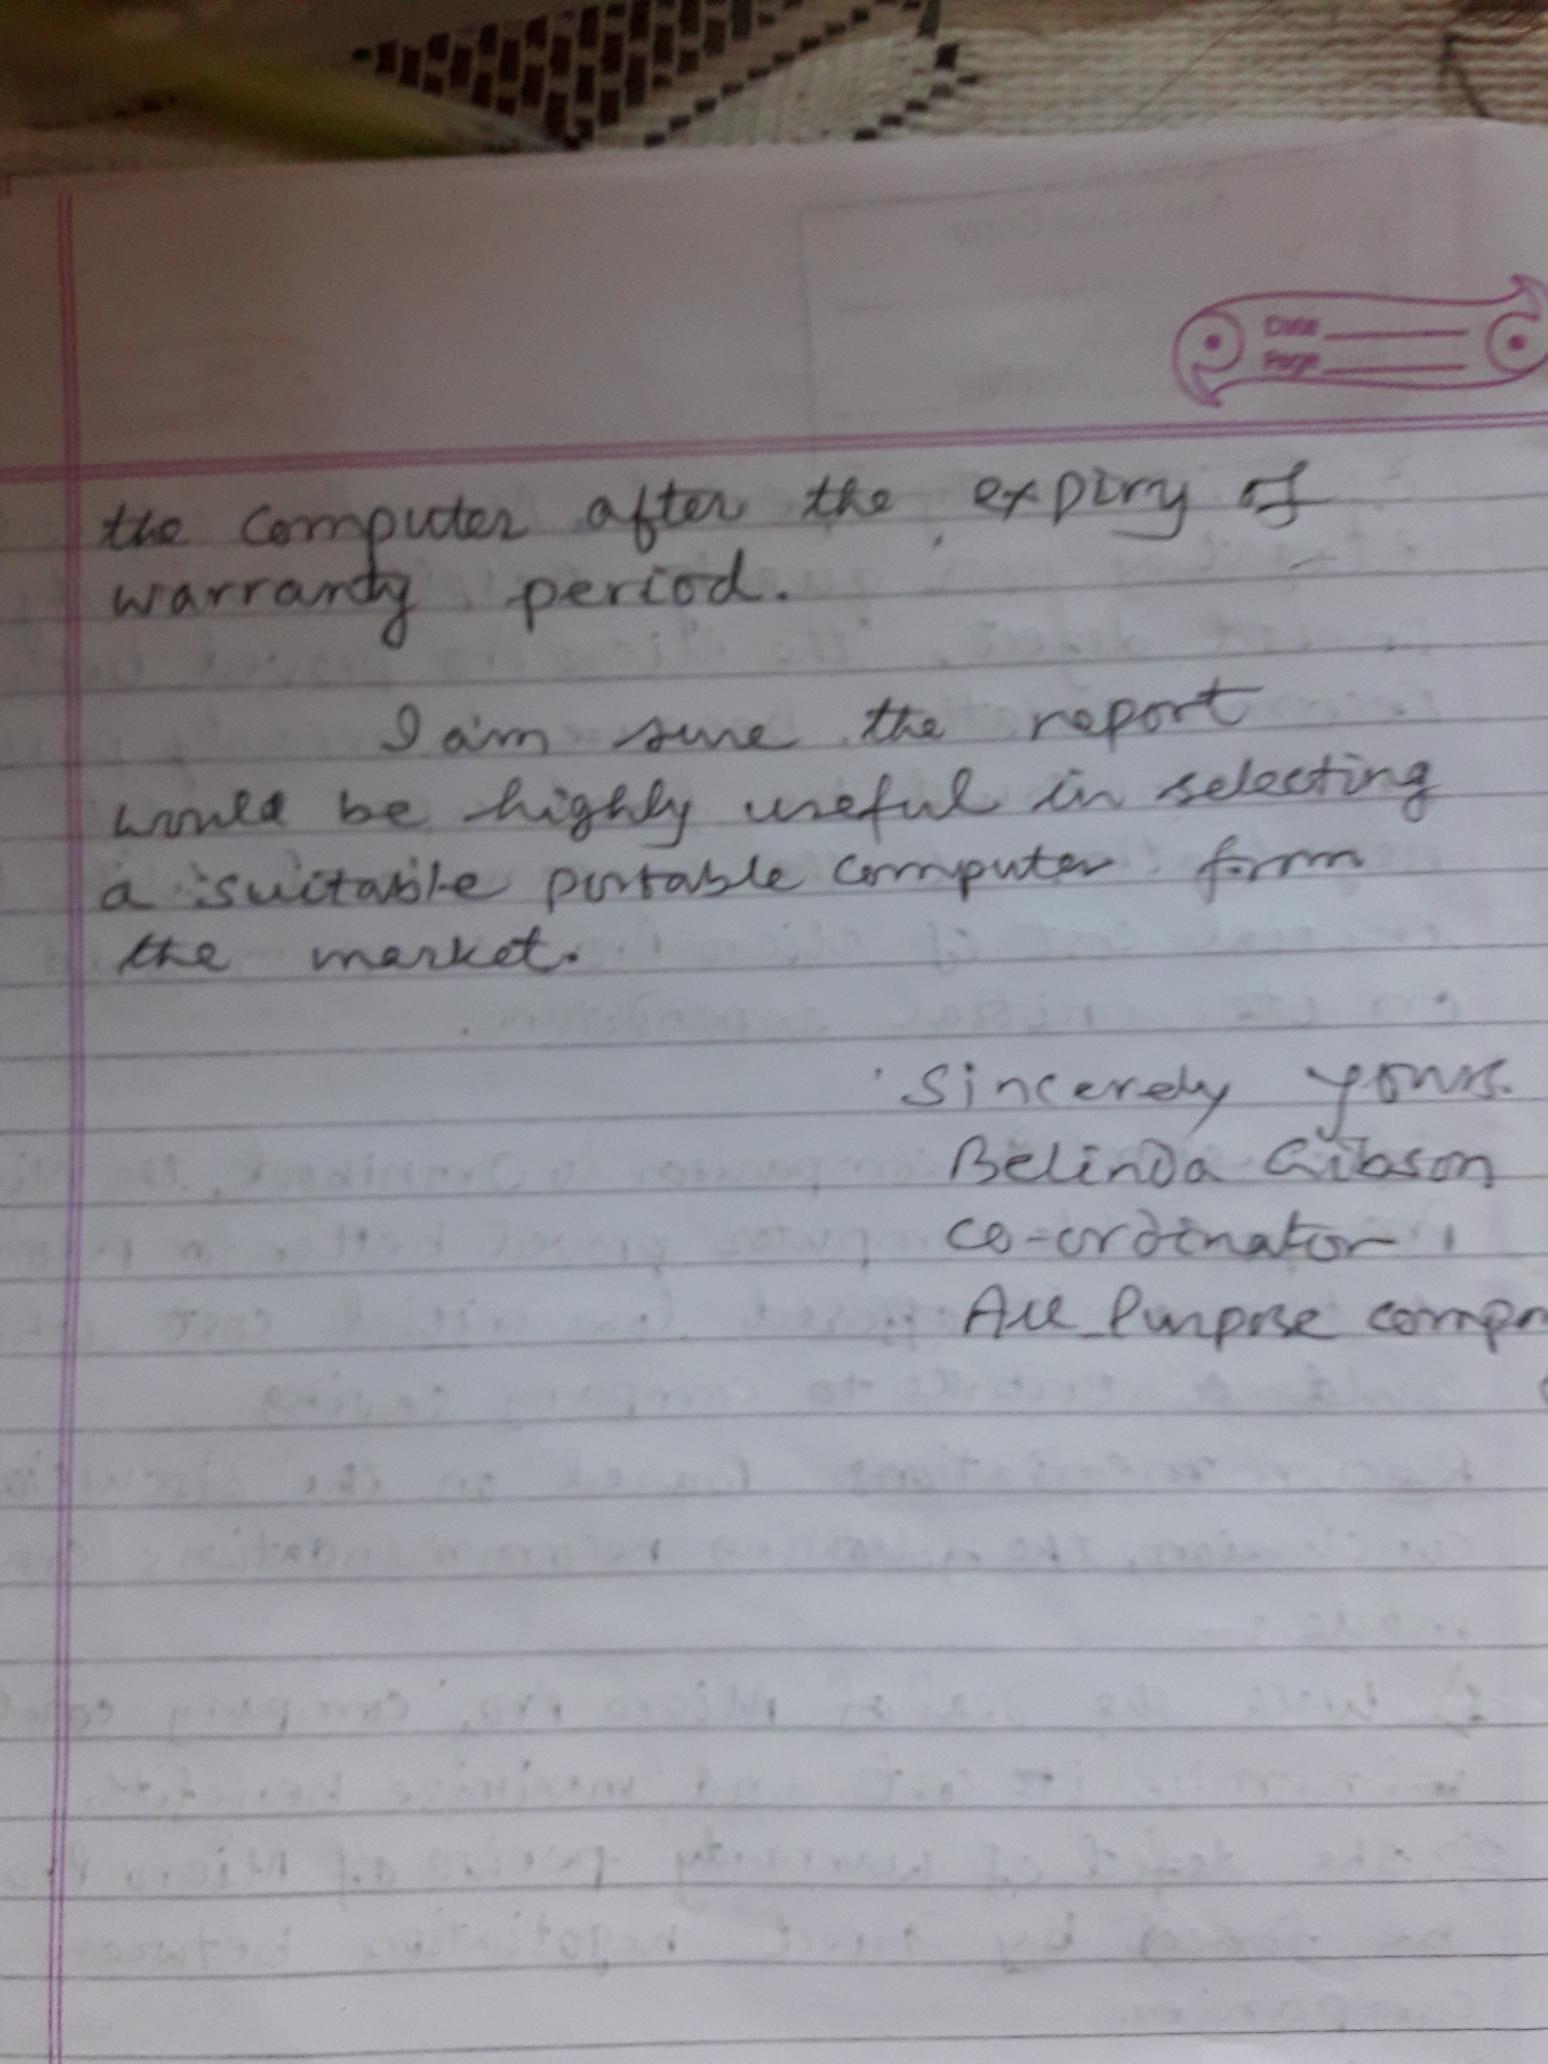 Date
Page
the computer after the expiry of
warranty period.
I am sure the report
would be highly useful in selecting
a suitable portable computer form
the market.
Sincerely yours.
Belinda Gibson
co-ordinator
All Purpose